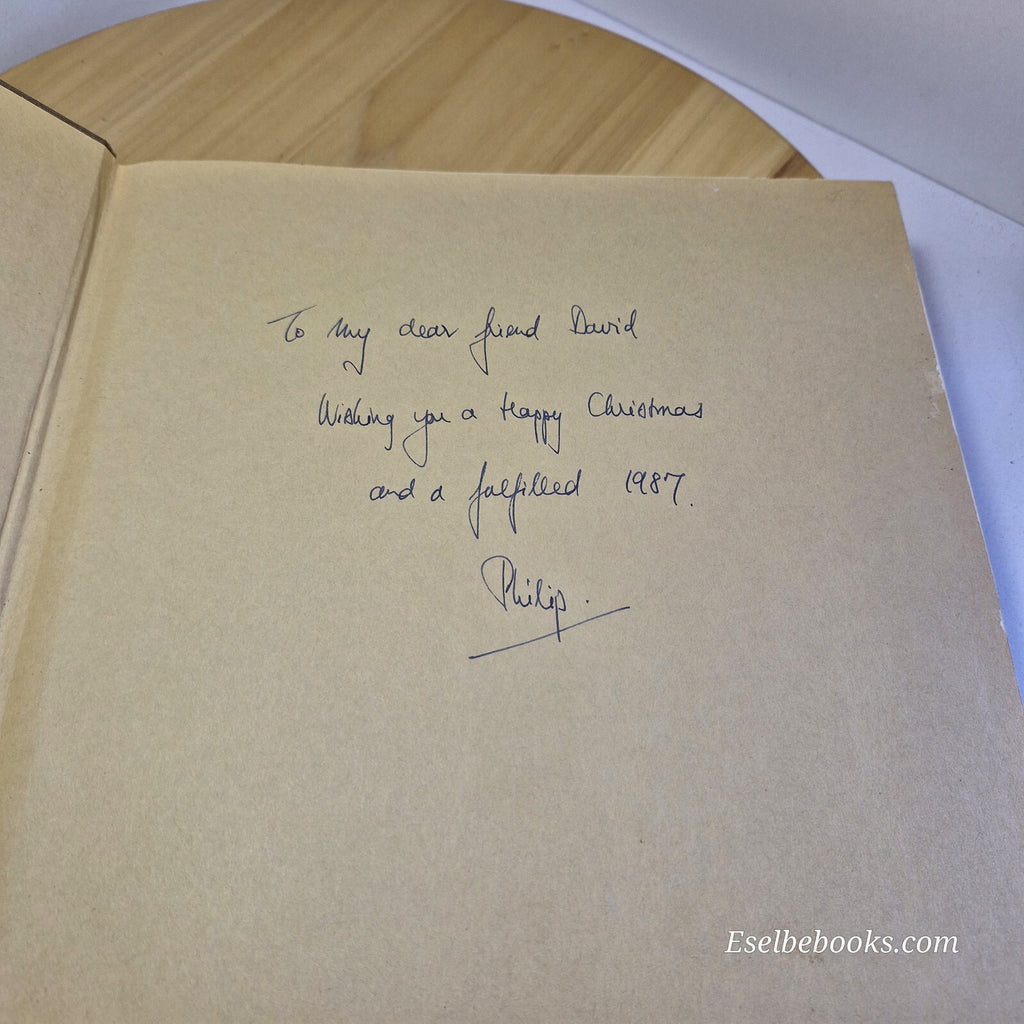 To My dear friend David
Wishing you a Happy Christmas
and a fulfilled 1987.
Philip.
Eselbebooks.com